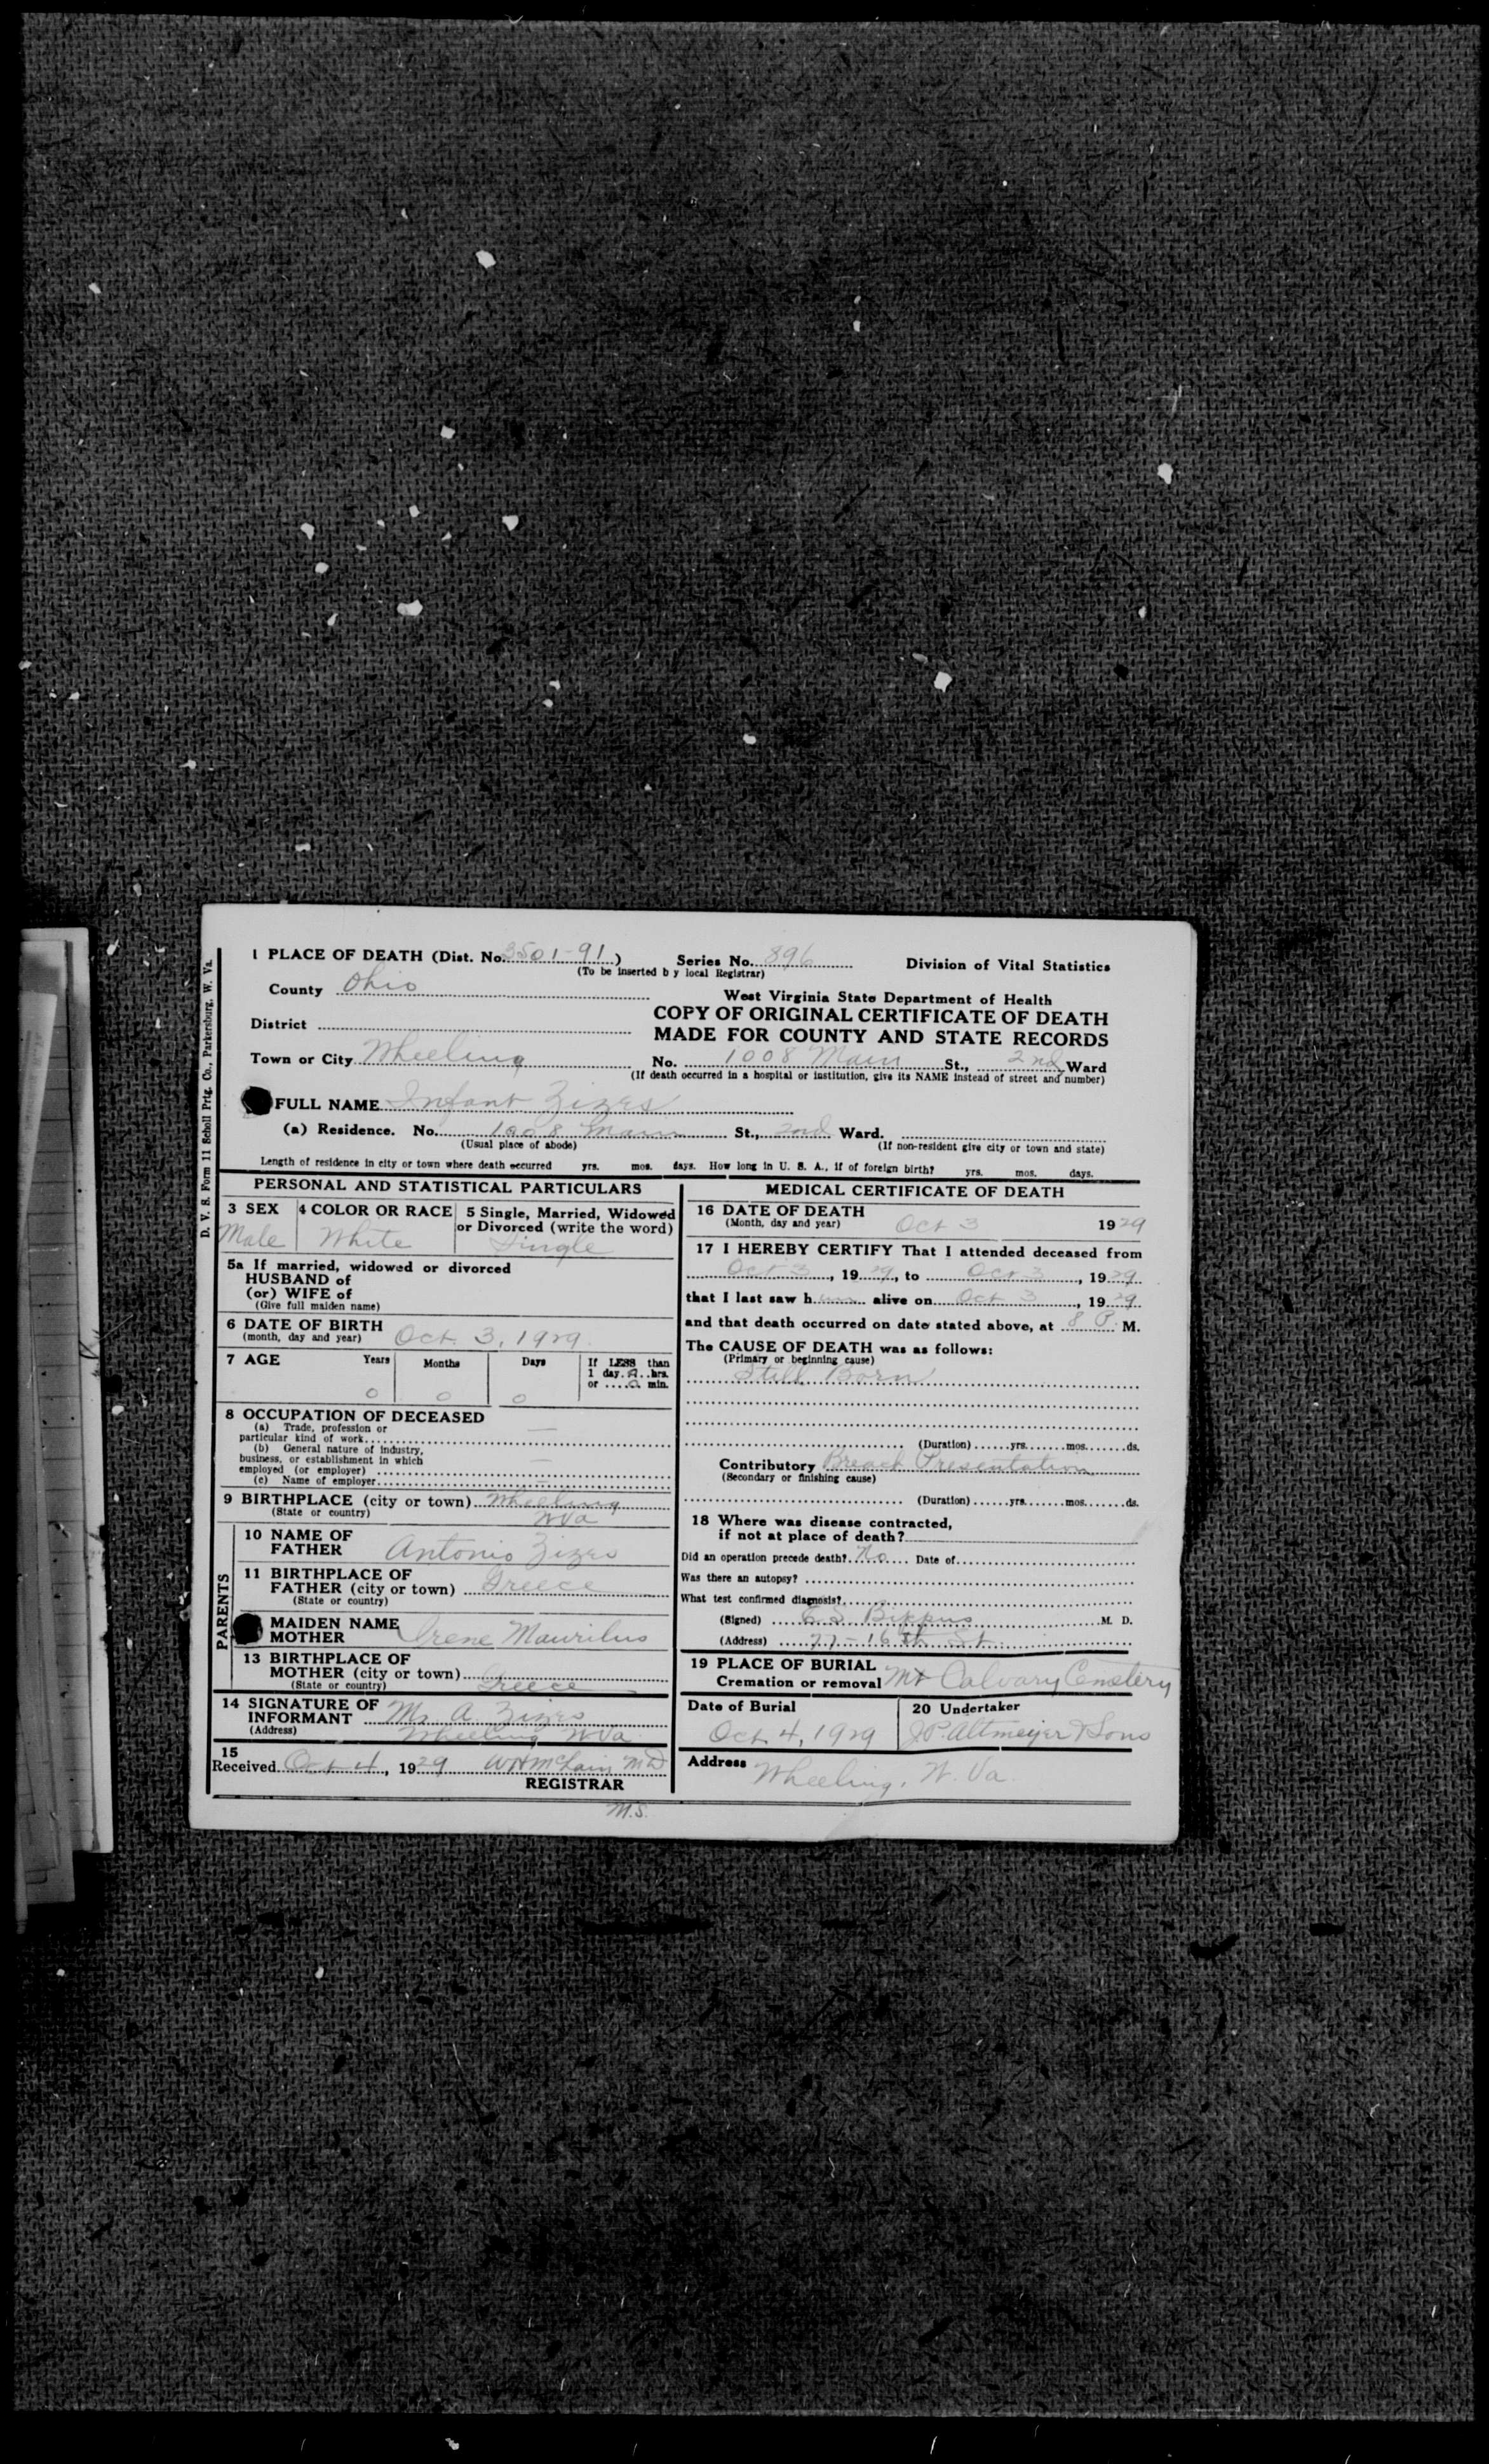 D. V. S. Form 11 Scholl Prtg. Co., Parkersburg, W. Va.
1 PLACE OF DEATH (Dist. No. 3501-91) Series No. 896 Division of Vital Statistics
(To be inserted b y local Registrar)
County Ohio
West Virginia State Department of Health
COPY OF ORIGINAL CERTIFICATE OF DEATH
MADE FOR COUNTY AND STATE RECORDS
District
Town or City Wheeling No. 1008 Main St., 2nd Ward
(If death occurred in a hospital or institution, give its NAME instead of street and number)
FULL NAME Infant Zizes
(a) Residence. No. 1008 Main St., 2nd Ward.
(Usual place of abode) (If non-resident give city or town and state)
Length of residence in city or town where death occurred yrs. mos. days. How long in U. S. A., if of foreign birth? yrs. mos. days.
PERSONAL AND STATISTICAL PARTICULARS
3 SEX 4 COLOR OR RACE 5 Single, Married, Widowed
or Divorced (write the word)
Male White Single
5a If married, widowed or divorced
HUSBAND of
(or) WIFE of
(Give full maiden name)
6 DATE OF BIRTH
(month, day and year) Oct. 3, 1929.
7 AGE Years Months Days If LESS than
1 day. 0 hrs.
or 0 min.
0 0 0
8 OCCUPATION OF DECEASED
(a) Trade, profession or
particular kind of work —
(b) General nature of industry,
business, or establishment in which
employed (or employer) —
(c) Name of employer —
9 BIRTHPLACE (city or town) Wheeling
(State or country) W Va
PARENTS
10 NAME OF
FATHER Antonio Zizes
11 BIRTHPLACE OF
FATHER (city or town) Greece
(State or country)
MAIDEN NAME
MOTHER Irene Maurilus
13 BIRTHPLACE OF
MOTHER (city or town)
(State or country) Greece
14 SIGNATURE OF
INFORMANT Mr. A. Zizes
(Address) Wheeling W Va.
15
Received Oct 4, 1929 W H McLain M D
REGISTRAR
MEDICAL CERTIFICATE OF DEATH
16 DATE OF DEATH
(Month, day and year) Oct 3 1929
17 I HEREBY CERTIFY That I attended deceased from
Oct 3, 1929, to Oct 3, 1929
that I last saw him alive on Oct 3, 1929
and that death occurred on date stated above, at 8 P. M.
The CAUSE OF DEATH was as follows:
(Primary or beginning cause)
Still Born
(Duration) yrs. mos. ds.
Contributory Breach Presentation
(Secondary or finishing cause)
(Duration) yrs. mos. ds.
18 Where was disease contracted,
if not at place of death?
Did an operation precede death? No Date of
Was there an autopsy?
What test confirmed diagnosis?
(Signed) E S Bippus M. D.
(Address) 77-16th St.
19 PLACE OF BURIAL
Cremation or removal Mt Calvary Cemetery
Date of Burial 20 Undertaker
Oct. 4, 1929 J.P. Altmeyer & Sons
Address Wheeling, W. Va.
M.S.